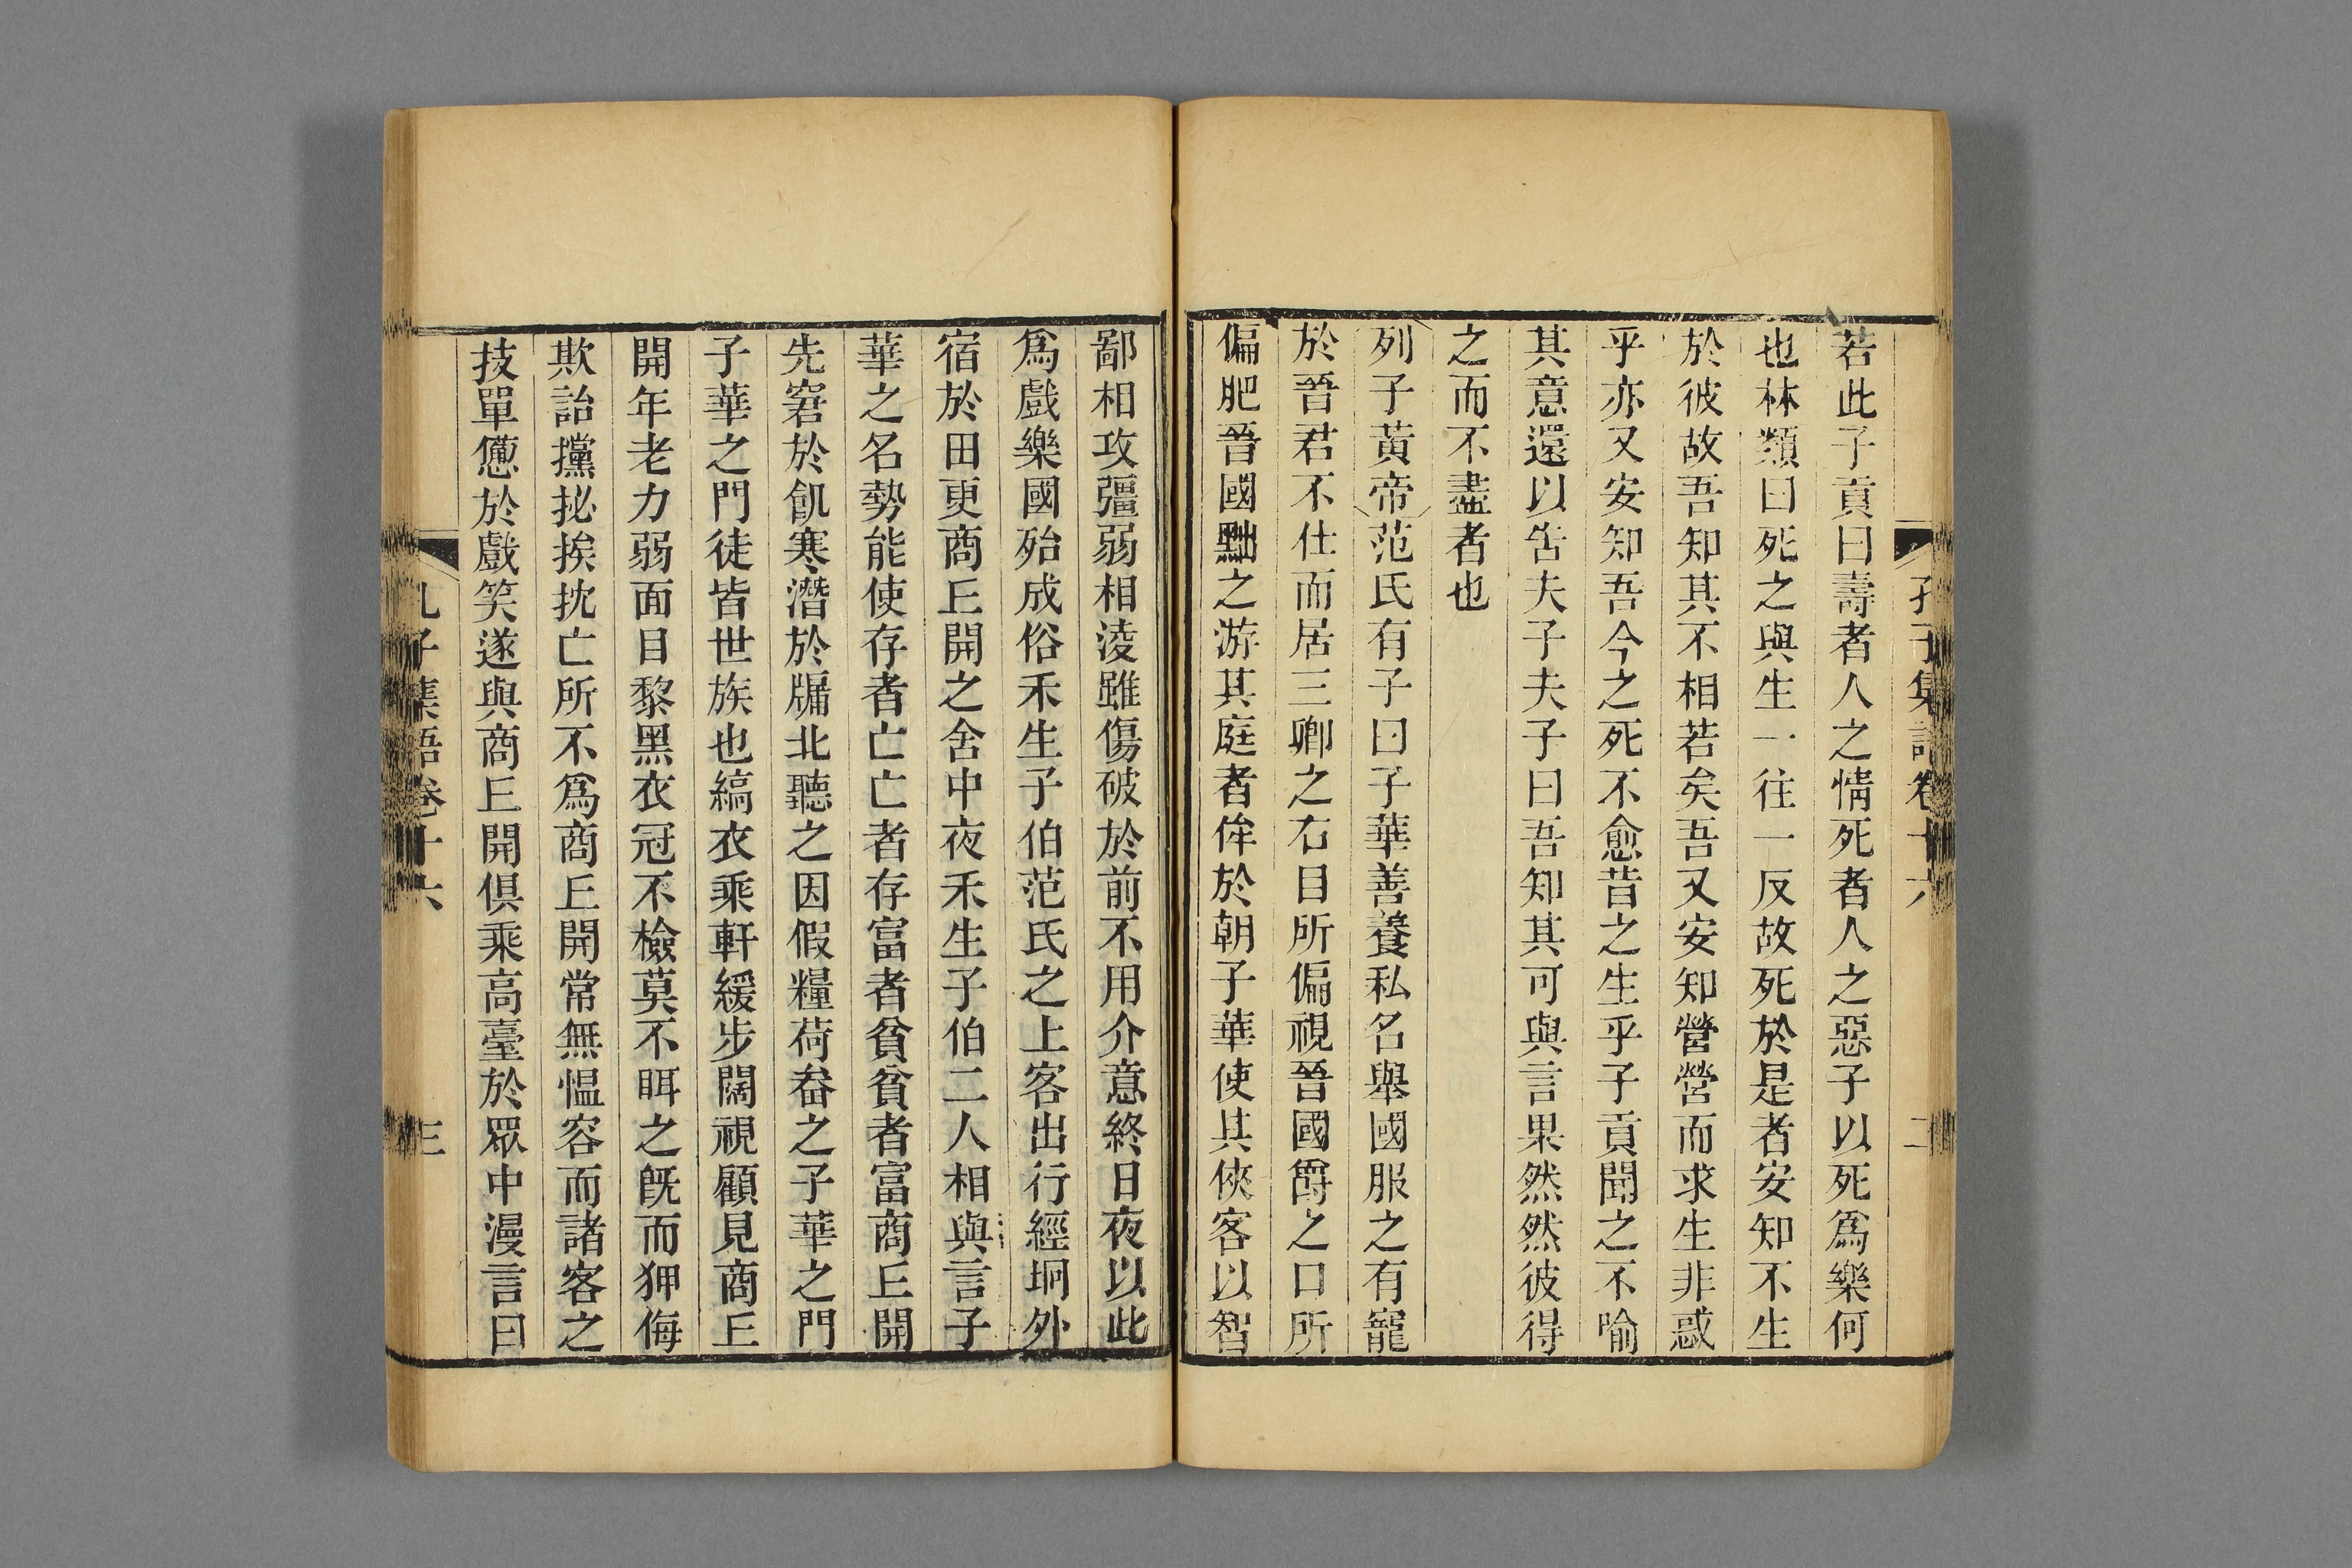 孔子集語卷十六 二
若此子貢曰壽者人之情死者人之惡子以死爲樂何
也林類曰死之與生一往一反故死於是者安知不生
於彼故吾知其不相若矣吾又安知營營而求生非惑
乎亦又安知吾今之死不愈昔之生乎子貢聞之不喻
其意還以告夫子夫子曰吾知其可與言果然然彼得
之而不盡者也
列子黃帝范氏有子曰子華善養私名舉國服之有寵
於晉君不仕而居三卿之右目所偏視晉國爵之口所
偏肥晉國黜之游其庭者侔於朝子華使其俠客以智
鄙相攻彊弱相淩雖傷破於前不用介意終日夜以此
爲戲樂國殆成俗禾生子伯范氏之上客出行經坰外
宿於田更商丘開之舍中夜禾生子伯二人相與言子
華之名勢能使存者亡亡者存富者貧貧者富商丘開
先窘於飢寒潛於牖北聽之因假糧荷畚之子華之門
子華之門徒皆世族也縞衣乘軒緩步闊視顧見商丘
開年老力弱面目黎黑衣冠不檢莫不眲之旣而狎侮
欺詒攩㧙挨抌亡所不爲商丘開常無慍容而諸客之
技單憊於戲笑遂與商丘開俱乘高臺於眾中漫言曰
孔子集語卷十六 三